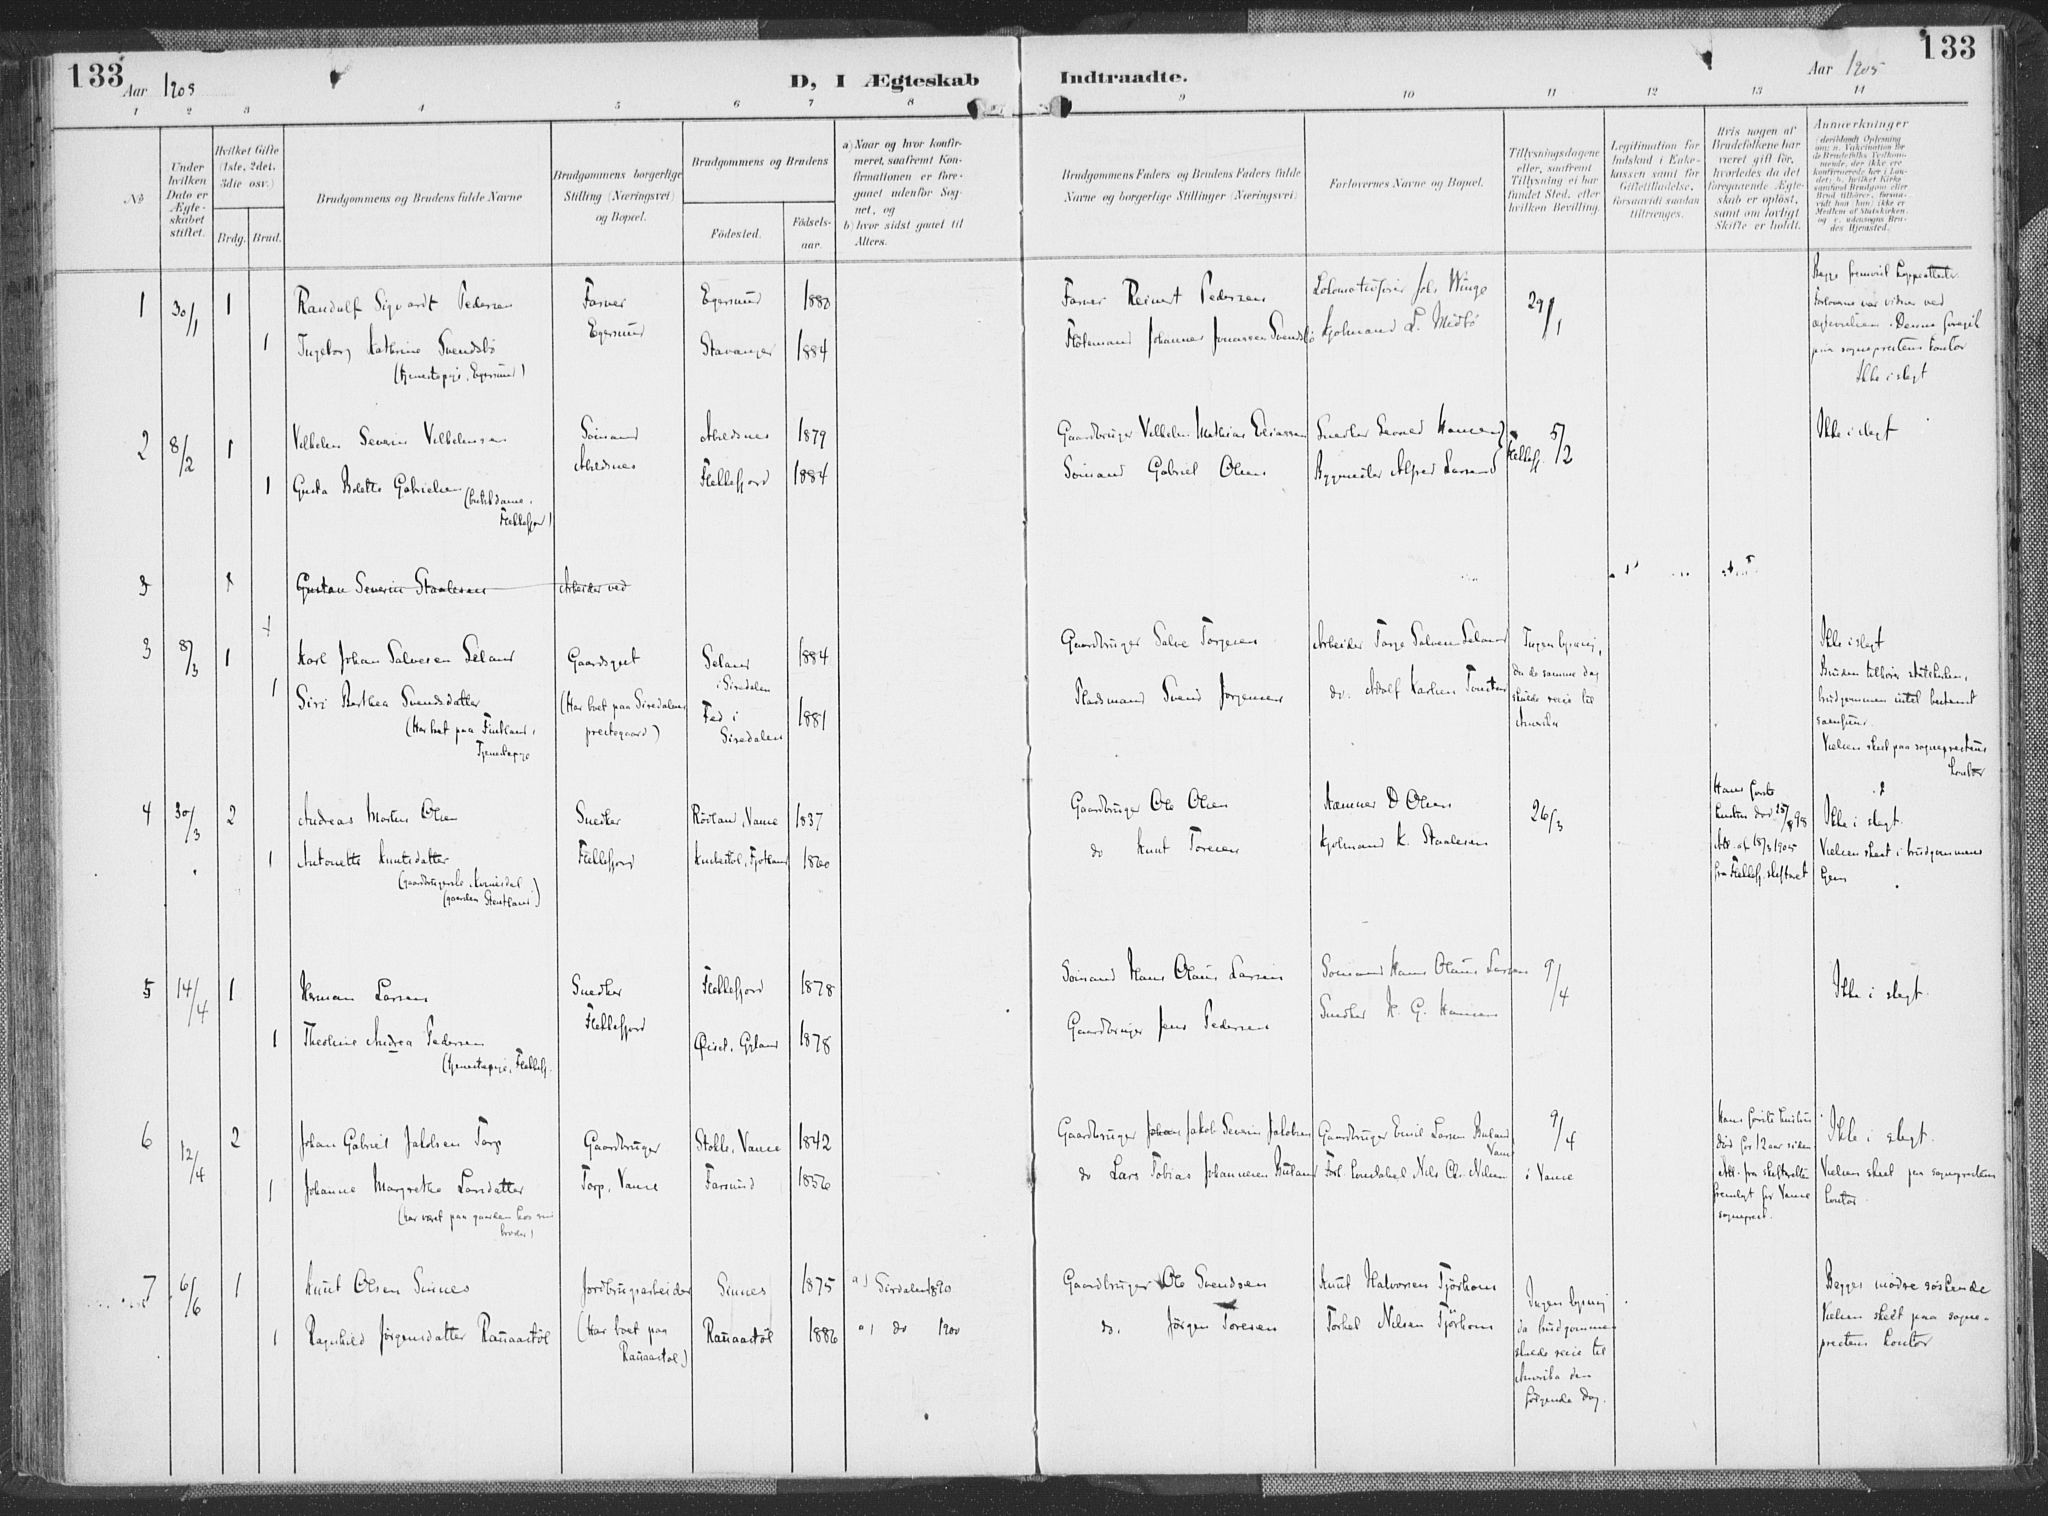 133
Aar 1905
D, I Ægteskab Indtraadte.
Aar 1905
133
1 2 3 4 5 6 7 8 9 10 11 12 13 14
No
Under hvilken Dato er Ægteskabet stiftet.
Hvilket Gifte (1ste, 2det, 3die osv.)
Brdg. Brud.
Brudgommens og Brudens fulde Navne
Brudgommens borgerlige Stilling (Næringsvei) og Bopæl.
Brudgommens og Brudens
Födested.
Födselsaar.
a) Naar og hvor konfirmeret, saafremt Konfirmationen er foregaaet udenfor Sognet, og
b) hvor sidst gaaet til Alters.
Brudgommens Faders og Brudens Faders fulde Navne og borgerlige Stillinger (Næringsvei)
Forlovernes Navne og Bopæl.
Tillysningsdagene eller, saafremt Tillysning ei har fundet Sted, efter hvilken Bevilling.
Legitimation for Indskud i Enkekassen samt for Giftetilladelse, forsaavidt saadan tiltrænges.
Hvis nogen af Brudefolkene har været gift før, hvorledes da det foregaaende Ægteskab er opløst, samt om lovligt Skifte er holdt.
Anmærkninger
1 30/1 1 Randulf Sigvardt Pedersen Farver Egersund 1880 Farver Reinert Pedersen Lokomotivfører Joh. Winge 29/1
1 Ingeborg Kathrine Svendsbö Egersund Stavanger 1884 Flötemand Johannes Jonassen Svendsbö Kjolmand L. Midbö
(tjenestepige, Egersund)
Forloverne var vidner ved
paa sogneprestens kontor
Ikke i slegt
2 8/2 1 Vilhelm Severin Vilhelmsen Sömand Abelsnes 1879 Gaardbruger Vilhelm Mathias Eliassen Snedker Hansen 5/2 Ikke i slegt
1 Gusta Bolette Gabrielsen Abelsnes Flekkefjord 1884 Sömand Gabriel Olsen Bygmester Alfred Larsen Flekkefj.
(butikdame, Flekkefjord)
3 1 Gustav Severin Staalesen Arbeider ved
1
3 8/3 1 Karl Johan Salvesen Seland Gaardsgut Seland i Siredalen 1884 Gaardbruger Salve Torgersen Arbeider Tarje Salvesen Seland Ingen lysning, Ikke i slegt
1 Siri Berthea Svendsdatter (Har boet paa Siredalens prestegaard) Fed i Siredalen 1881 Pladsmand Svend Jörgensen do. Adolf Karlsen Tonstad da de samme dag skulde reise til Amerika
(Har boet paa Fintland, Tjenestepige
Bruden tilhører statskirken,
brudgommen intet bestemt
samfund.
Vielsen skeet paa sogneprestens kontor
4 30/3 2 Andreas Martin Olsen Snedker Röstad, Vanse 1837 Gaardbruger Ole Olsen Hammer D Olsen 26/3 Hans förste hustru död 25/8 98 Ikke i slegt.
1 Antonette Knutsdatter Flekkefjord Knibestöl, Fjotland 1860 do Knut Toresen Kjolmand K. Staalesen Att. af 18/3 1905 fra Flekkefj. skifteret Vielsen skeet i brudgommens hjem
5 14/4 1 Herman Larsen Snedker Flekkefjord 1878 Sömand Hans Olaus Larsen Sömand Hans Olaus Larsen 9/4 Ikke i slegt.
1 Theoline Andrea Pedersen Flekkefjord Gyland 1878 Gaardbruger Jens Pedersen Snedker K. G. Hansen
(tjenestepige, Flekkefj.
6 12/4 2 Johan Gabriel Jakobsen Torp Gaardbruger Stokke, Vanse 1842 Gaardbruger Johan Jakob Severin Jakobsen Gaardbruger Emil Larsen Buland Vanse 9/4 Hans förste hustru död for 12 aar siden Ikke i slegt.
1 Johanne Margrethe Larsdatter Torp, Vanse Farsund 1856 do Lars Tobias Johannesen Buland Nils Chr. Nilsen i Vanse Att. fra skifteretten fremlagt for Vanse sogneprest. Vielsen skeet paa sogneprestens kontor
(har været paa gaarden hos sin broder)
7 6/6 1 Knut Olsen Sinnes Jordbrugsarbeider Sinnes 1875 a) Sirdalen 1890 Gaardbruger Ole Svendsen Knut Halvorsen Tjörhom Ingen lysning Begges mödre söskende
1 Ragnhild Jörgensdatter Rauaastöl (Har boet paa Rauaastöl) Rauaastöl 1886 a) do 1900 do. Jörgen Toresen Torkel Nilsen Tjörhom da brudgommen skulde reise til Amerika den fölgende dag. Vielsen skeet paa sogneprestens kontor